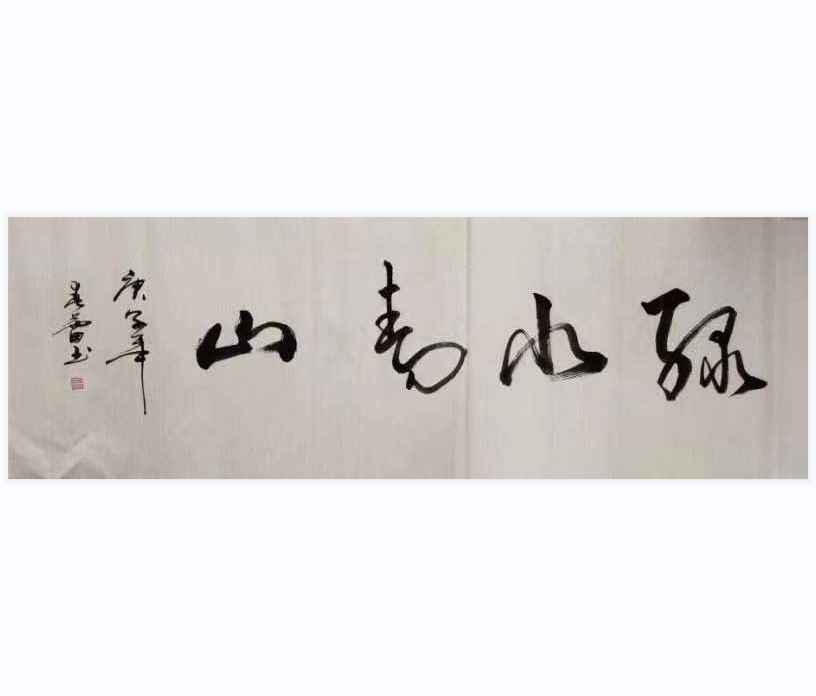 绿水青山
庚子年
春雷书